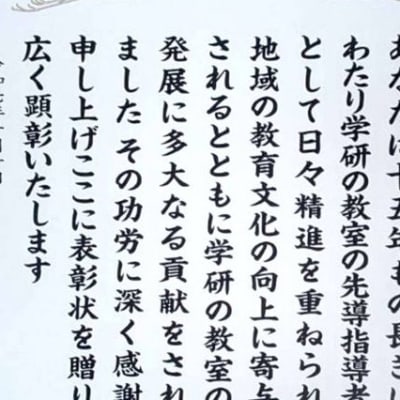 あなたは十五年もの長きに
わたり学研の教室の先導指導者
として日々精進を重ねられ
地域の教育文化の向上に寄与
されるとともに学研の教室の
発展に多大なる貢献をされ
ました その功労に深く感謝
申し上げここに表彰状を贈り
広く顕彰いたします